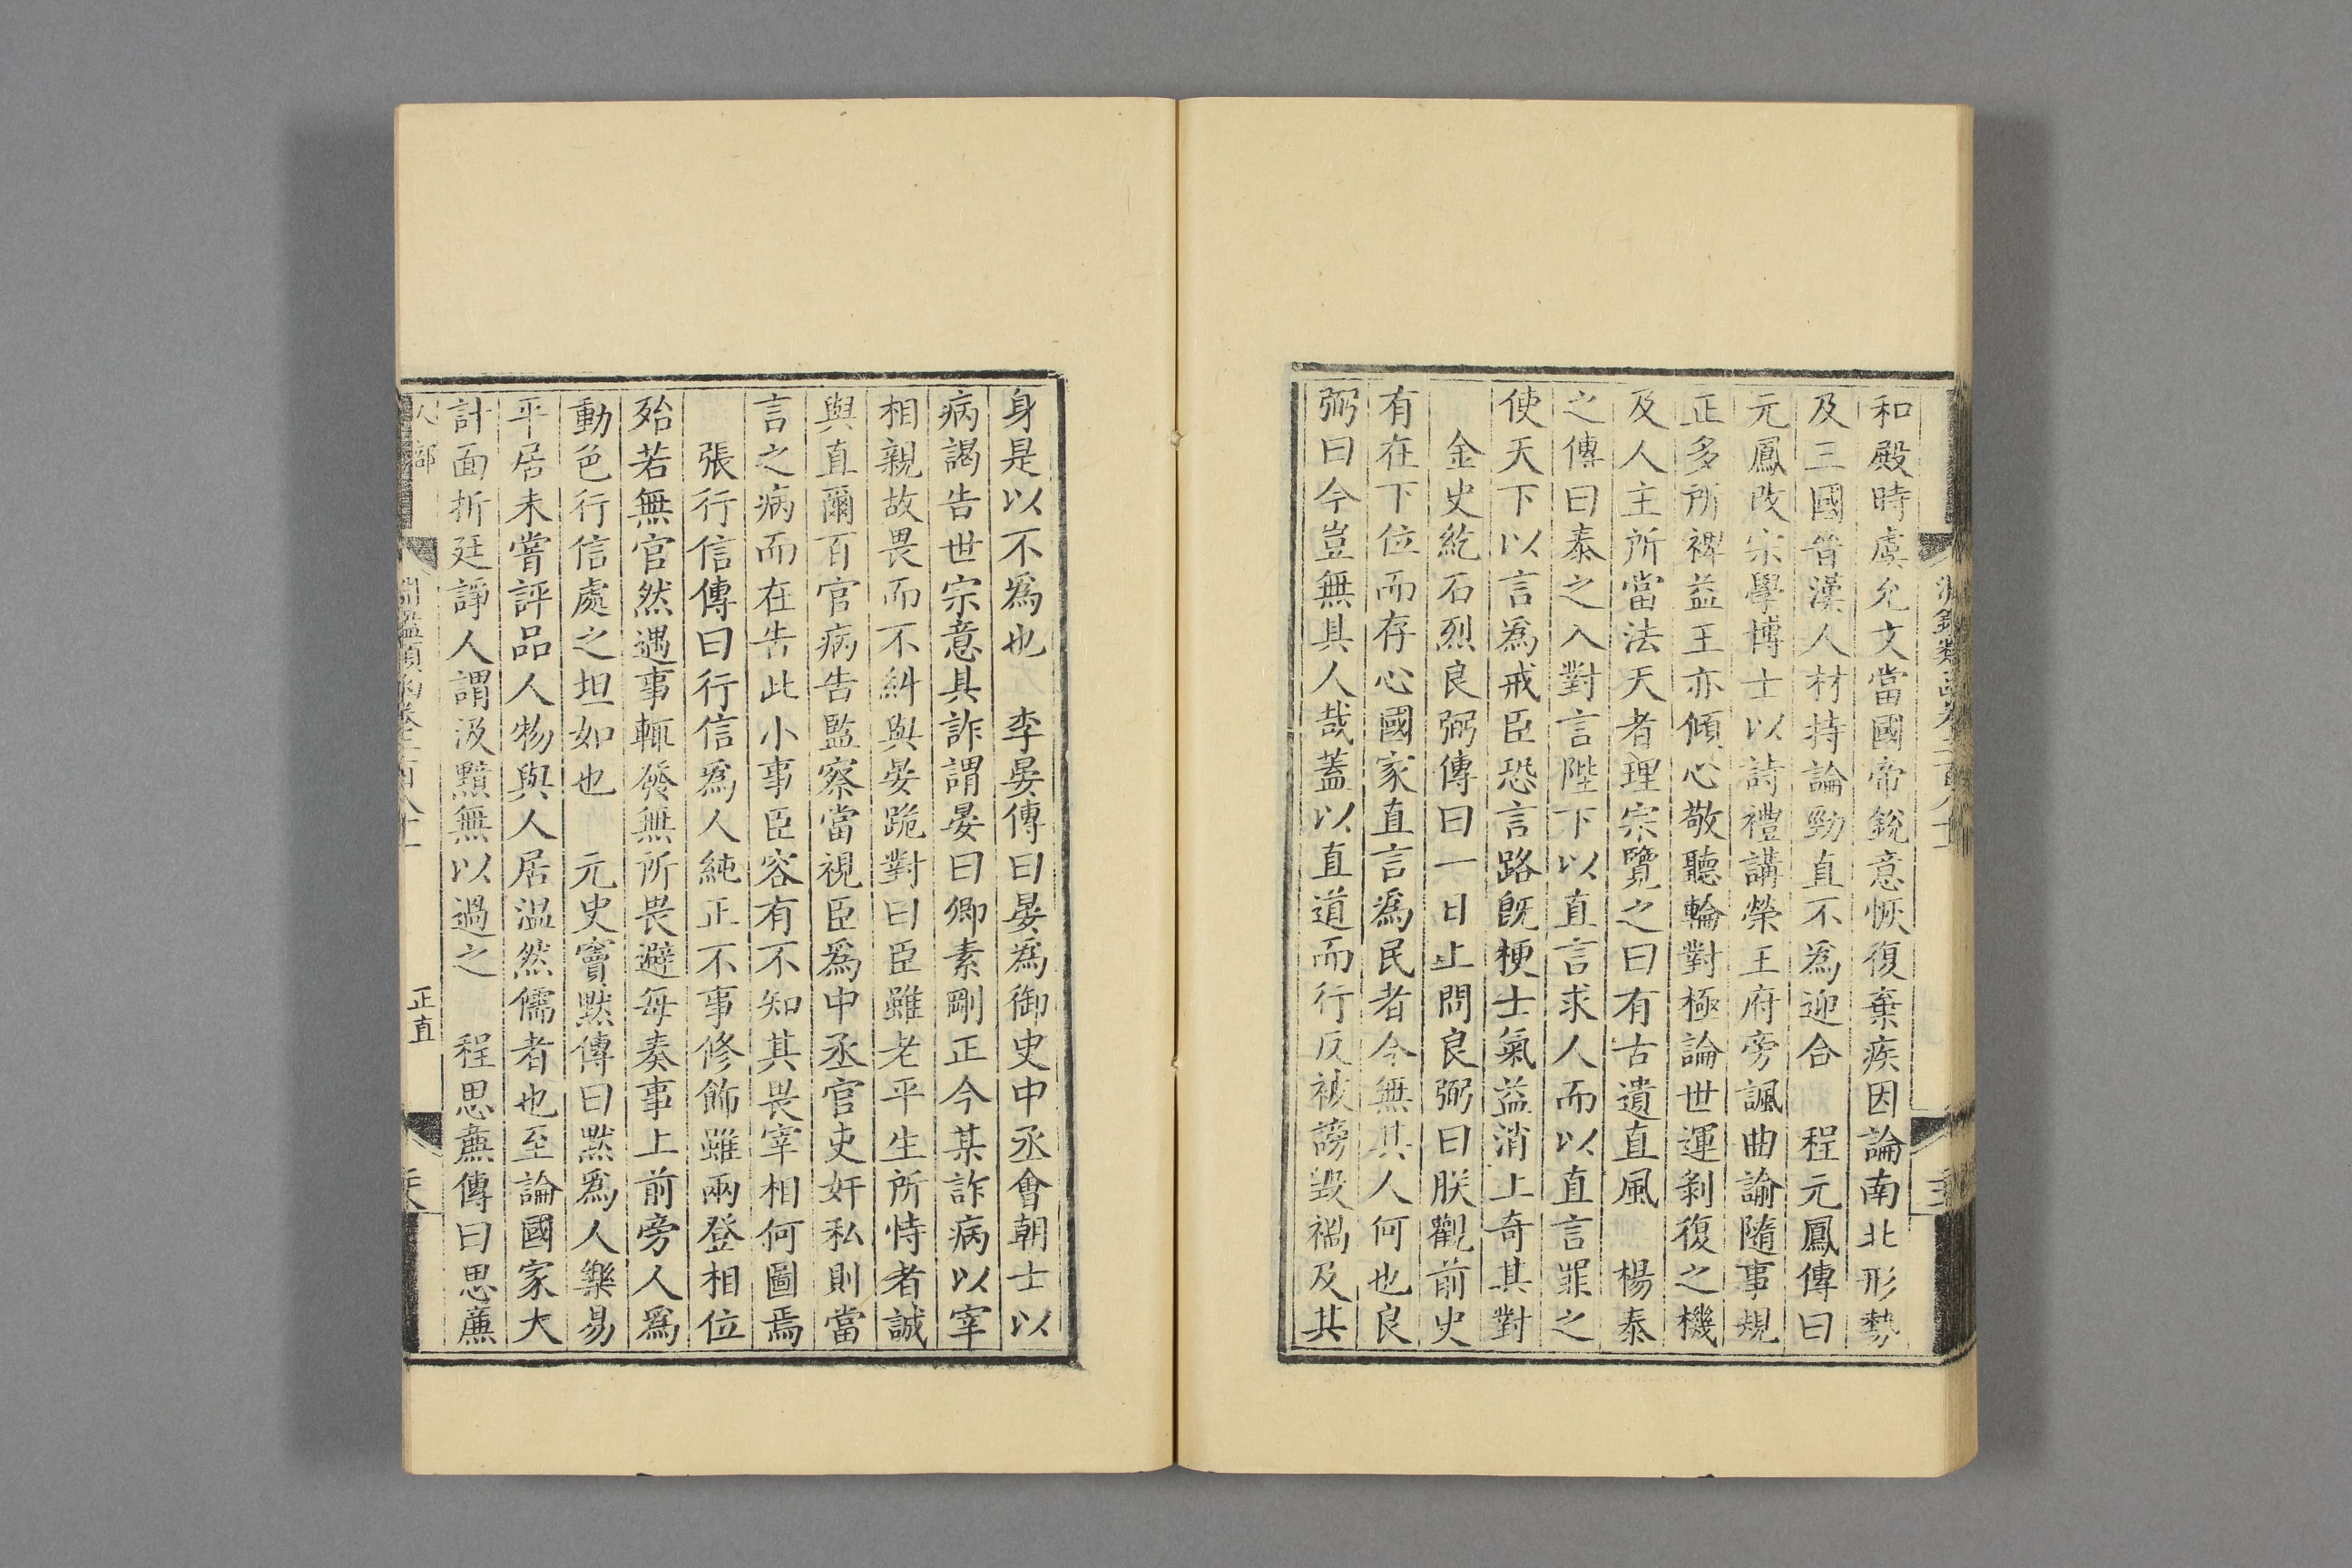 和殿時虞允文當國帝銳意恢復棄疾因論南北形勢
及三國晉漢人材持論勁直不為迎合　程元鳳傳曰
元鳳改宗學博士以詩禮講榮王府旁諷曲諭隨事規
正多所裨益王亦傾心敬聽輪對極論世運剝復之機
及人主所當法天者理宗覽之曰有古遺直風　楊泰
之傳曰泰之入對言陛下以直言求人而以直言罪之
使天下以言為戒臣恐言路旣梗士氣益消上奇其對
金史紇石烈良弼傳曰一日上問良弼曰朕觀前史
有在下位而存心國家直言為民者今無其人何也良
弼曰今豈無其人哉蓋以直道而行反被謗毀禍及其
身是以不爲也　李晏傳曰晏爲御史中丞會朝士以
病謁告世宗意其詐謂晏曰卿素剛正今某詐病以宰
相親故畏而不糾與晏跪對曰臣雖老平生所恃者誠
與直爾百官病告監察當視臣爲中丞官吏奸私則當
言之病而在告此小事臣容有不知其畏宰相何圖焉
張行信傳曰行信爲人純正不事修飾雖兩登相位
殆若無官然遇事輒發無所畏避每奏事上前旁人爲
動色行信處之坦如也　元史竇默傳曰默爲人樂易
平居未嘗評品人物與人居温然儒者也至論國家大
計面折廷諍人謂汲黯無以過之　程思廉傳曰思廉
人部
淵鑑類函卷二百八十一
正直